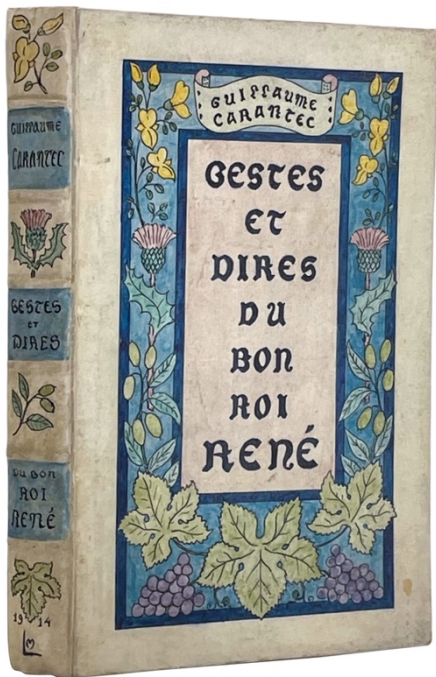 GUILLAUME
CARANTEC
GESTES
ET
DIRES
DU
BON
ROI
RENÉ
GUILLAUME
CARANTEC
GESTES
ET
DIRES
DU BON
ROI
RENÉ
19 14